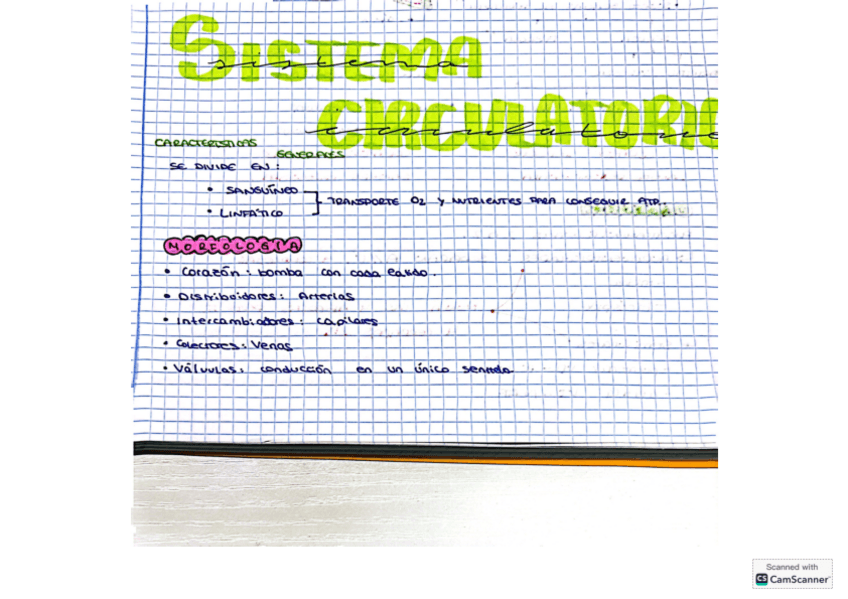 SISTEMA
sistema
CIRCULATORIO
circulatorio
CARACTERÍSTICAS
GENERALES
SE DIVIDE EN:
• SANGUÍNEO
TRANSPORTE O2 Y NUTRIENTES PARA CONSEGUIR ATP.
• LINFÁTICO
MORFOLOGIA
• Corazón: bomba con cada latido.
• Distribuidores: Arterias
• Intercambiadores: capilares
• Colectores: Venas
• Válvulas: conducción en un único sentido
Scanned with
CS CamScanner